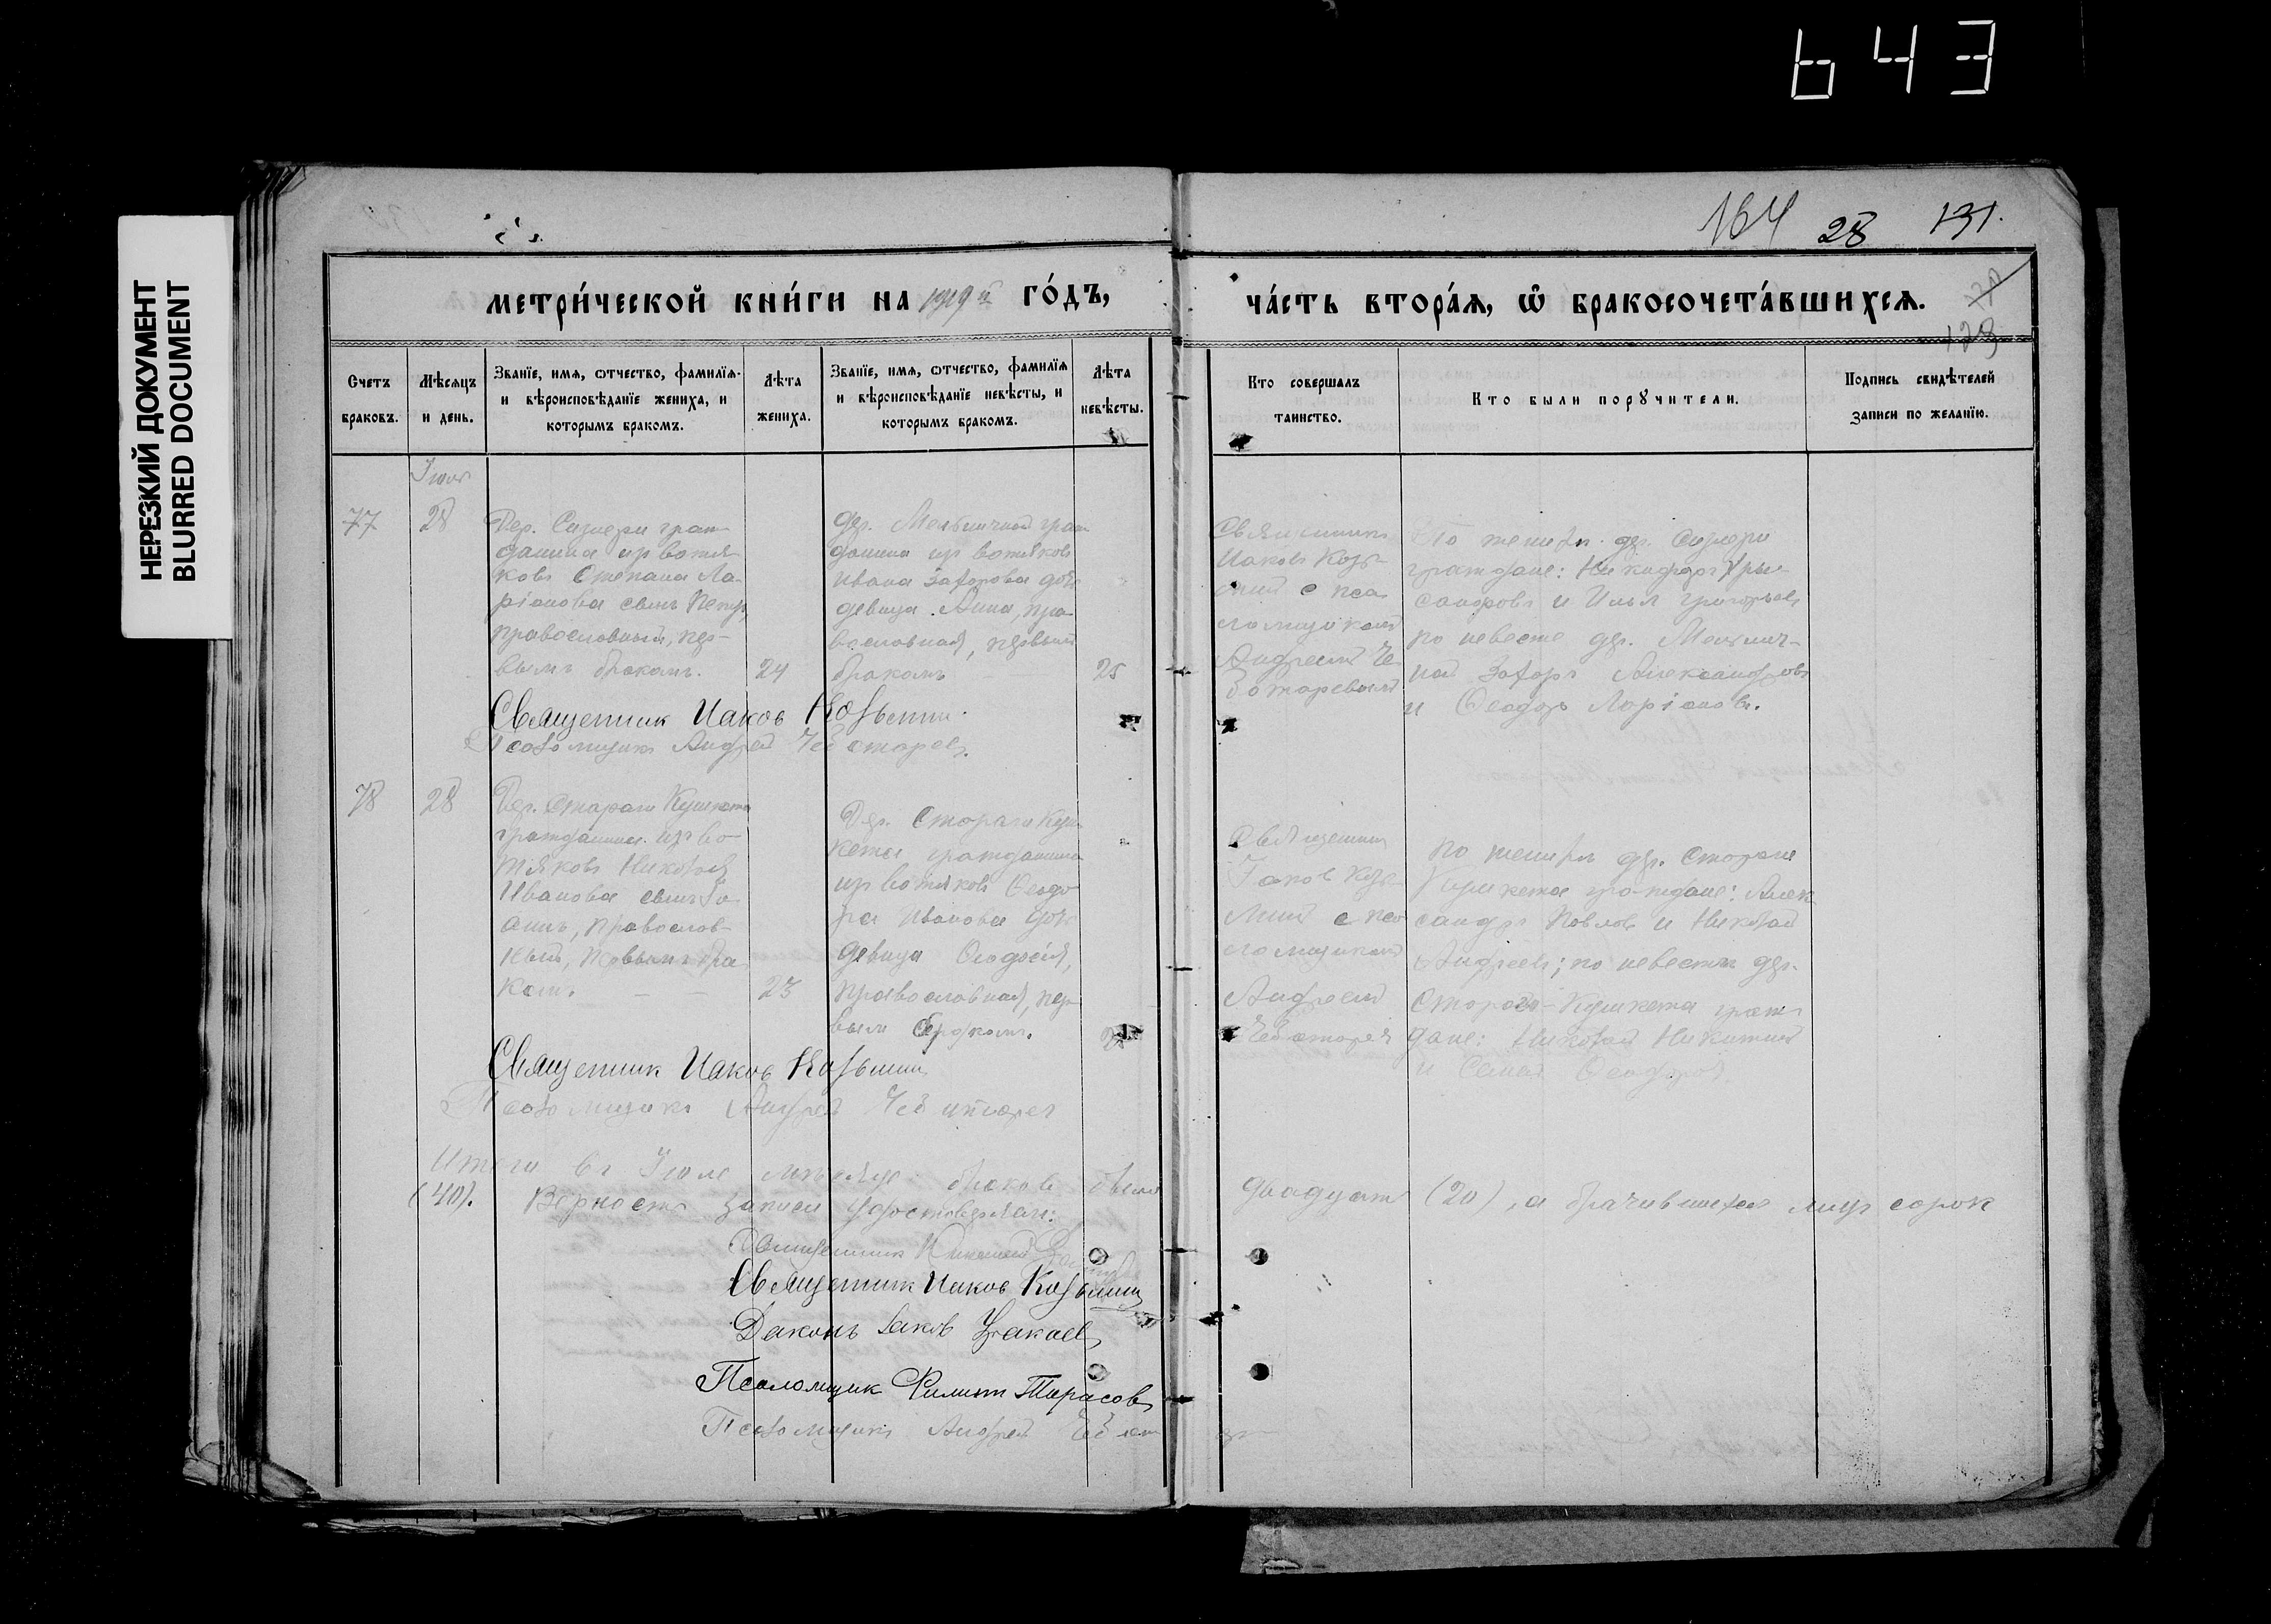 643
НЕРЕЗКИЙ ДОКУМЕНТ
BLURRED DOCUMENT
164 28 131.
128
МЕТРИ́ЧЕСКОЙ КНИ́ГИ НА 1919 й ГО́ДЪ,
ЧА́СТЬ ВТОРА́Я, Ѿ БРАКОСОЧЕТА́ВШИХСЯ.
Счетъ браковъ.
Мѣсяцъ и день.
Званїе, имя, ѿтчество, фамилїя
и вѣроисповѣданїе жениха, и
которымъ бракомъ.
Лѣта жениха.
Званїе, имя, ѿтчество, фамилїя
и вѣроисповѣданїе невѣсты, и
которымъ бракомъ.
Лѣта невѣсты.
Кто совершалъ
таинство.
Кто были порꙋчители.
Подпись свидѣтелей
записи по желанїю.
77
28
Дер.
гражданина из вотя-
ковъ Степана Ла-
ріонова сынъ Петръ,
православный, пер-
вымъ бракомъ.
24
дер. Мельничной граж
данина из вотяковъ
Ивана Захарова дочь
девица Анна, пра-
вославная, первымъ
бракомъ
25
Священникъ
Иаковъ Козь-
миныи с пса
ломщикомъ
Андреем Че
ботаревымъ
По жениху дер.
граждане: Никифоръ
и Илья Григорьевъ
по невесте дер. Мельнич-
ная Захаръ Александровъ
и Ѳеодоръ Ларіоновъ.
Священник Иаков Козьмин.
Псаломщикъ Андрей Чеботаревъ.
78
28
Дер. Старая Кушкета
гражданина из во-
тяковъ Николая
Иванова сынъ
православ-
ный, первымъ бра
комъ. – –
23
Дер. Старая Куш
кета гражданина
из вотяковъ Ѳеодо
ра Иванова дочь
девица Ѳеодосія,
православная, пер-
вым бракомъ.
Священник
Іаков Козь
мин с пса
ломщикомъ
Андреем
Чеботарев
по жениху дер. Старая
Кушкета граждане: Алек
сандръ Павловъ и Николай
Андреевъ; по невесте дер.
Старая-Кушкета граж
дане: Николай Никитин
и Семен Ѳеодоров.
Священник Иаков Козьмин
Псаломщикъ Андрей Чеботарев
Итого въ Іюле месяце браков было двадцать (20), а брачившихся лиц сорок
(40). Верность записи удостоверяем:
Священник
Священник Иаков Козьмин
Диаконъ Іаков Ураков
Псаломщик Филипп Тарасов
Псаломщикъ Андрей Чеботарев